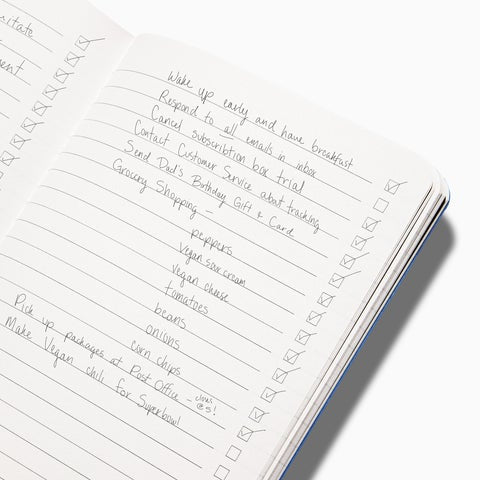 Wake up early and have breakfast
Respond to all emails in inbox
Cancel subscribtion box trial
Contact Customer Service about tracking
Send Dad's Birthday Gift & Card
Grocery Shopping –
peppers
vegan sour cream
vegan cheese
tomatoes
beans
onions
corn chips
Pick up packages at Post Office – closes @5!
Make Vegan chili for Superbowl